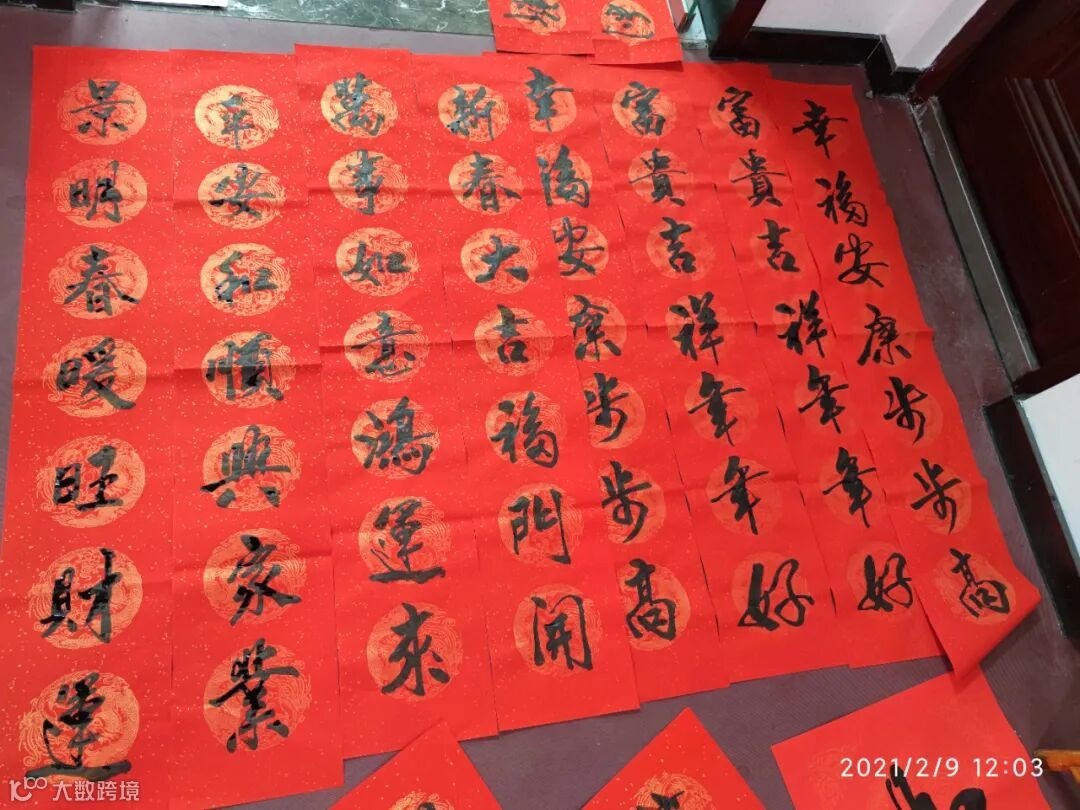 幸福安康步步高
富貴吉祥年年好
富貴吉祥年年好
幸福安康步步高
新春大吉福門開
萬事如意鴻運來
平安和順興家業
景明春暖旺財運
2021/2/9 12:03
大数跨境